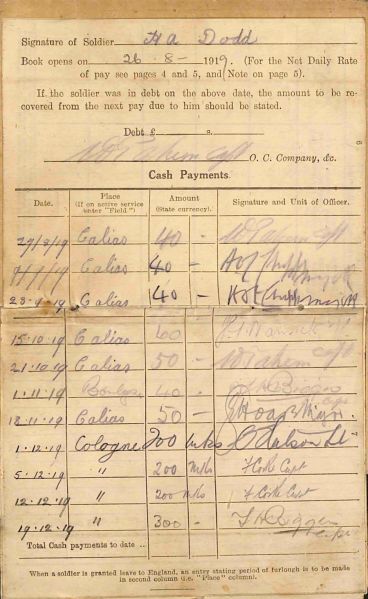 Signature of Soldier H A Dodd
Book opens on 26-8-1919. (For the Net Daily Rate
of pay see pages 4 and 5, and (Note on page 5).
If the soldier was in debt on the above date, the amount to be re-
covered from the next pay due to him should be stated.
Debt £ s.
Capt O. C. Company, &c.
Cash Payments.
Date. Place (If on active service enter "Field") Amount (State currency). Signature and Unit of Officer.
27/8/19 Calias 40 -
Calias 40 -
23-9-19 Calias 40 -
15.10.19 Calias 60
21.10.19 Calias 50 - Capt
1.11.19 40 -
18.11.19 Calias 50 -
1.12.19 Cologne 200 mks Lt
5.12.19 " 200 Mks Capt
12.12.19 " 200 Mks Capt
19.12.19 " 300 -
Total Cash payments to date ..
When a soldier is granted leave to England, an entry stating period of furlough is to be made
in second column (i.e. "Place" column).